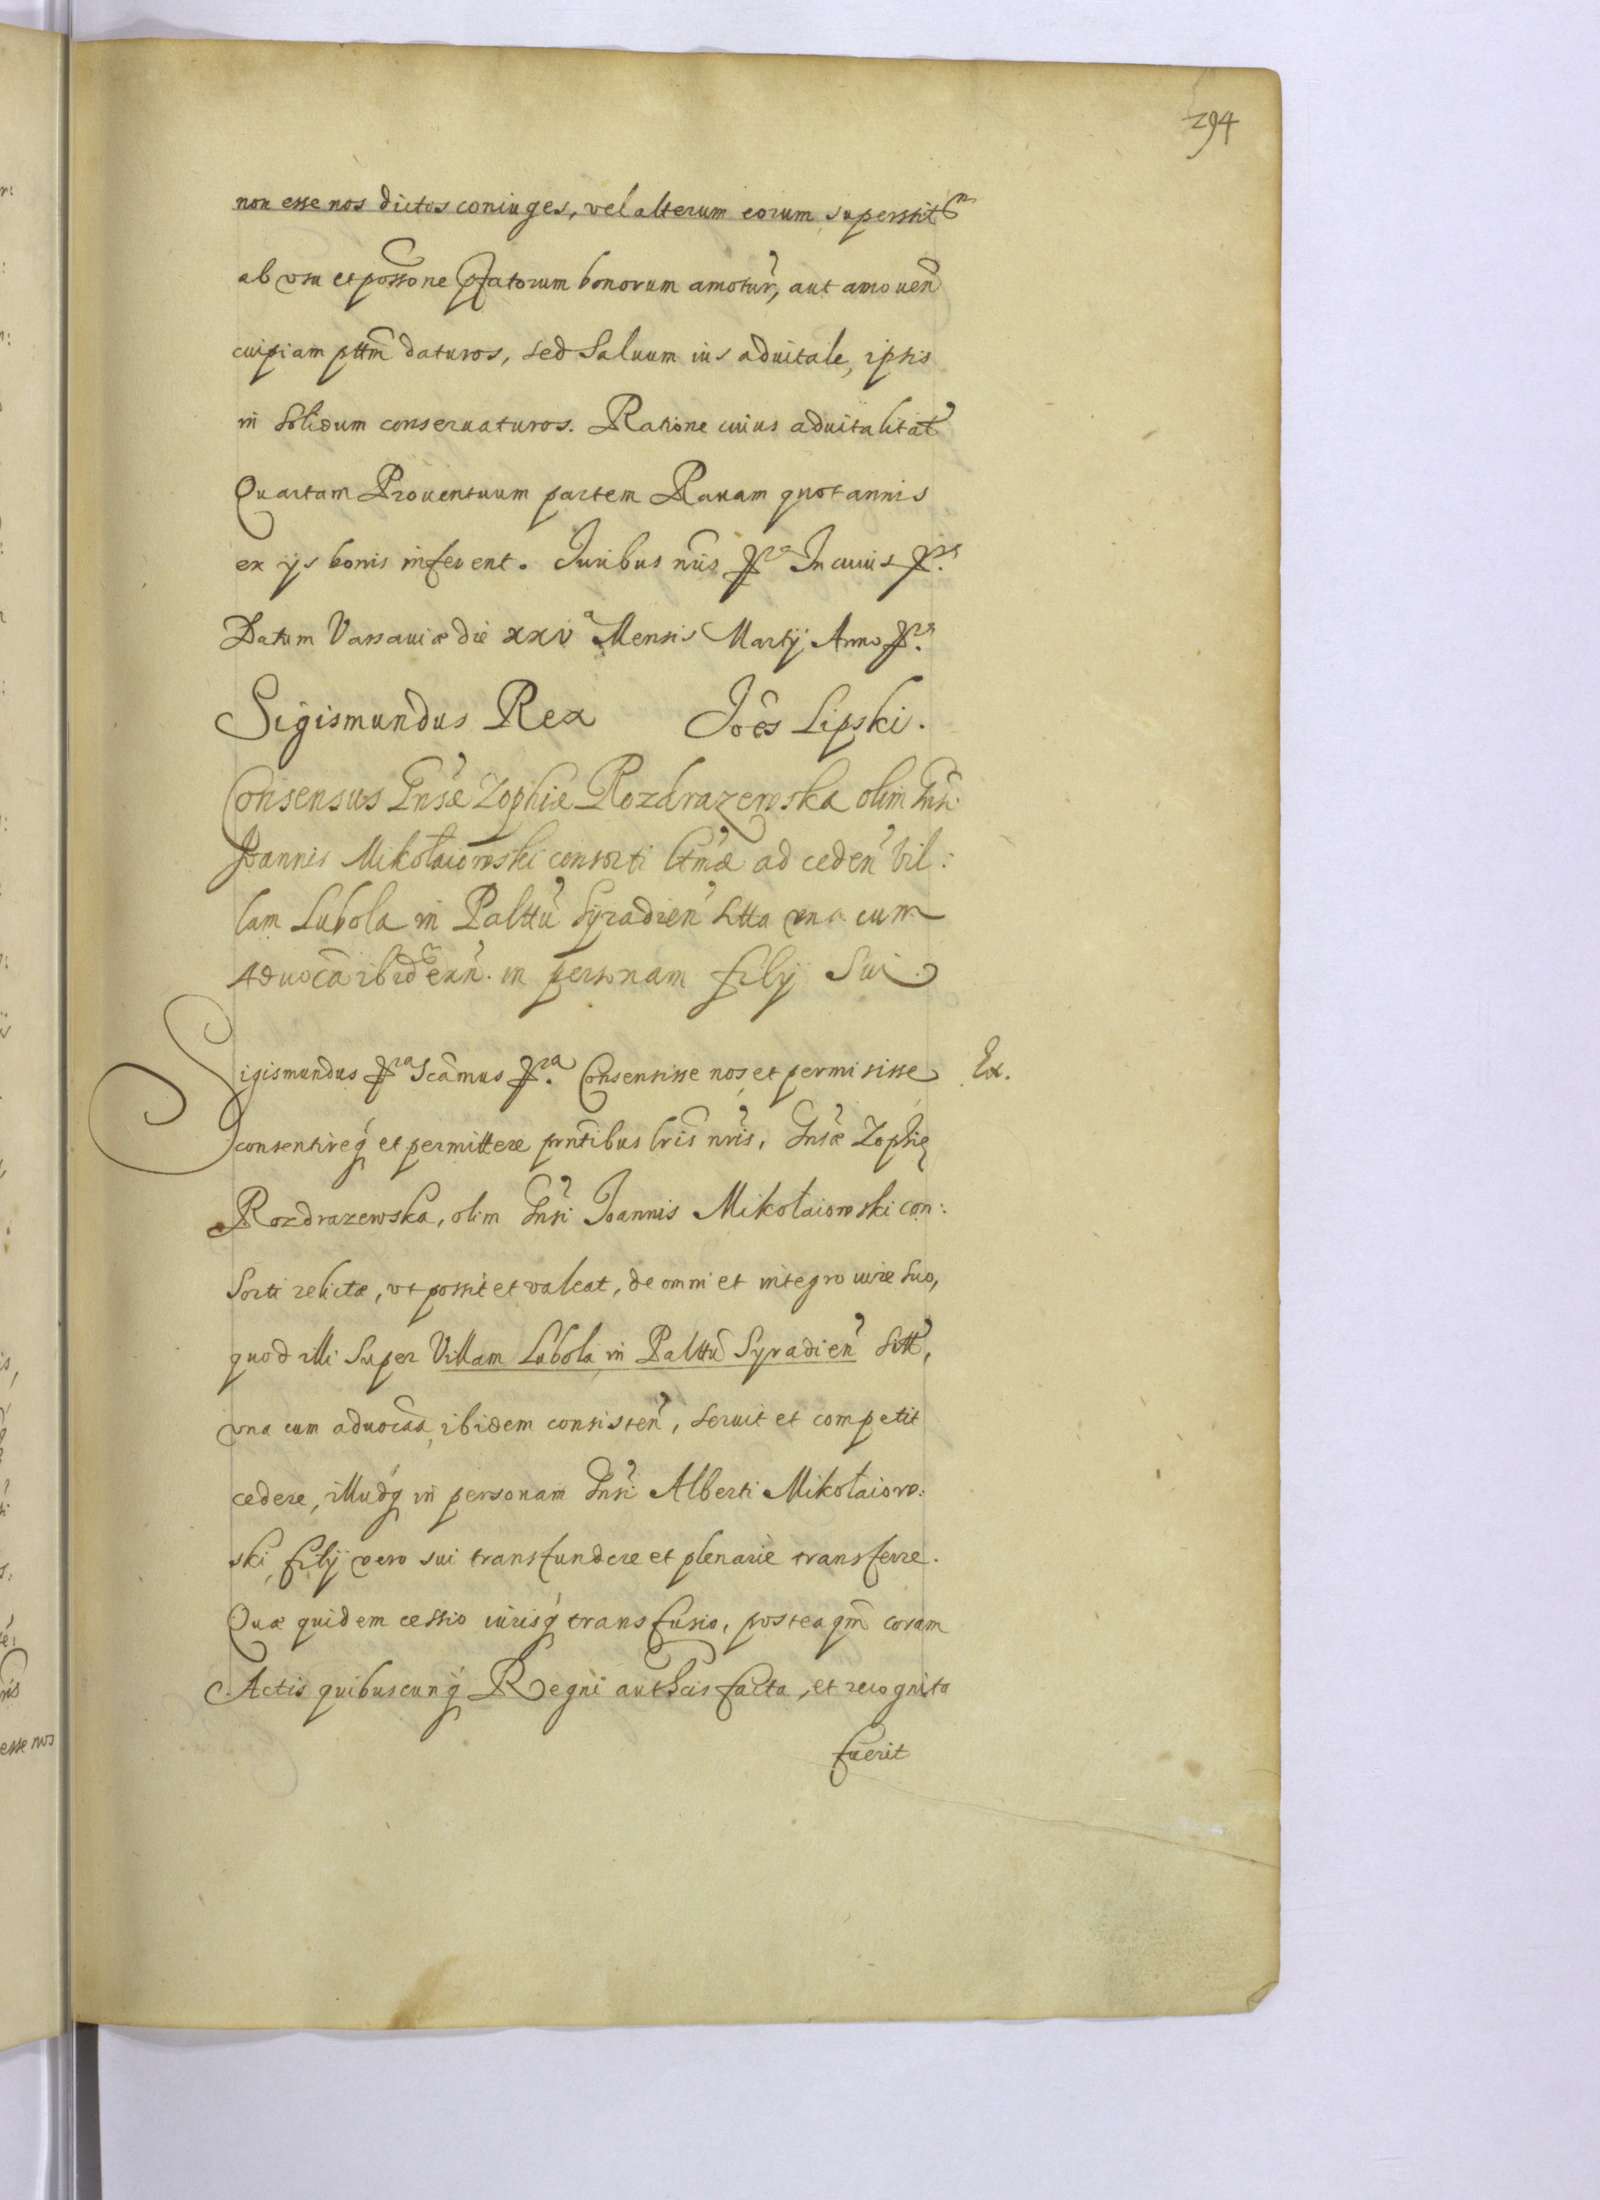 294
non esse nos dictos coniuges, vel alterum eorum superstit
ab usu et possone pfatorum bonorum amotur, aut amouen
cuipiam pttm daturos, sed saluum ius aduitale, ipsis
in solidum conseruaturos. Ratione cuius aduitalitat
Quartam Prouentuum partem Rauam quotannis
ex ijs bonis inferent. Iuribus nris In cuius
Datum Varsauiæ die xxiv Mensis Martij Anno
Sigismundus Rex Joes Lipski.
Consensus Gnsæ Zophiæ Rozdrazewska olim Gnsi
Joannis Mikołaiowski consorti ad ceden vil:
lam Lubola in Palttu Syradien sitta una cum
Aduoca ibidem exn. in personam filij sui
Sigismundus Scamus Consensisse nos et permisisse
Ex.
consentireq et permittere pntibus lris nris, Gnsæ Zophię
Rozdrazewska, olim Gnsi Joannis Mikołaiowski con:
sorti relictæ, ut possit et valeat, de omni et integro iure suo,
quod illi super Villam Lubola in Palttu Syradien sitt,
una cum aduocaa ibidem consisten, seruit et competit
cedere, illudq in personam Gnsi Alberti Mikołaiow:
ski, filij vero sui transfundere et plenarie transferre.
Quæ quidem cessio iurisq transfusio, posteaqm coram
Actis quibuscunq Regni authcis facta, et recognita
fuerit
esse nos